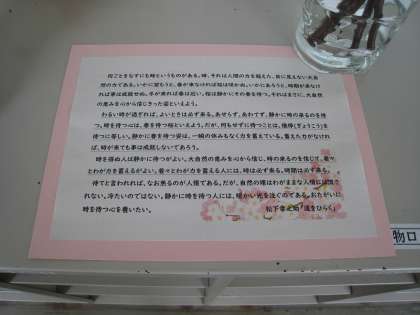 何ごとをなすにも時というものがある。時、それは人間の力を超えた、目に見えない大自
然の力である。いかに望もうと、春が来なければ桜は咲かぬ。いかにあせろうと、時期が来なけ
れば事は成就せぬ。冬が来れば春は近い。桜は静かにその春を待つ。それはまさに、大自然
の恵みを心から信じきった姿といえよう。
わるい時が過ぎれば、よいときは必ず来る。あせらず、あわてず、静かに時の来るのを待
つ。時を待つ心は、春を待つ桜といえよう。だが、何もせずに待つことは、僥倖(ぎょうこう)を
待つに等しい。静かに春を待つ桜は、一瞬の休みもなく力を蓄えている。蓄えた力がなけれ
ば、時が来ても事は成就しないであろう。
時を得ぬ人は静かに待つがよい。大自然の恵みを心から信じ、時の来るのを信じて、着々
とわが力を蓄えるがよい。着々とわが力を蓄える人には、時は必ず来る。時期は必ず来る。
待てと言われれば、なお焦るのが人情である。だが、自然の理はわがままな人情には流さ
れない。冷たいのではない。静かに時を待つ人には、暖かい光を注ぐのである。おたがいに
時を待つ心を養いたい。
松下幸之助「道をひらく」
物口